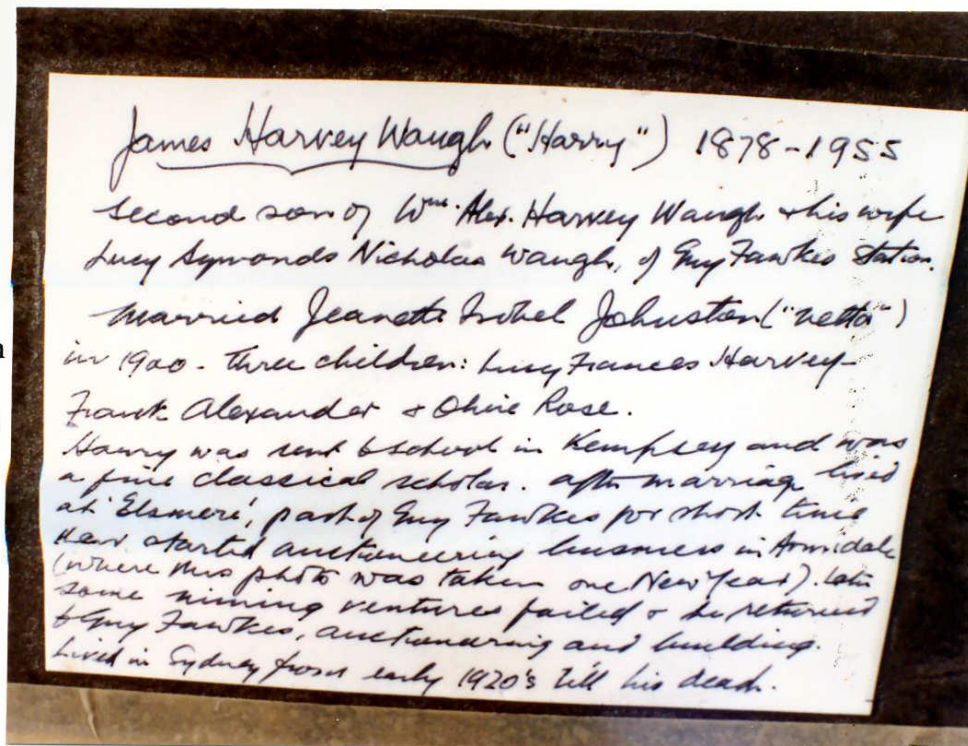 James Harvey Waugh ("Harry") 1878-1955
Second son of Wm. Alex. Harvey Waugh & his wife
Lucy Symonds Nicholas Waugh, of Guy Fawkes Station.
Married Jeanette Isobel Johnston ("Netta")
in 1900 - three children: Lucy Frances Harvey -
Frank Alexander & Olive Rose.
Harry was sent to school in Kempsey and was
a fine classical scholar. After marriage lived
at 'Elsmere', part of Guy Fawkes for short time
then started auctioneering business in Armidale
(where this photo was taken one New Year). Later
some mining ventures failed & he returned
to Guy Fawkes, auctioneering and building.
Lived in Sydney from early 1920's till his death.
n